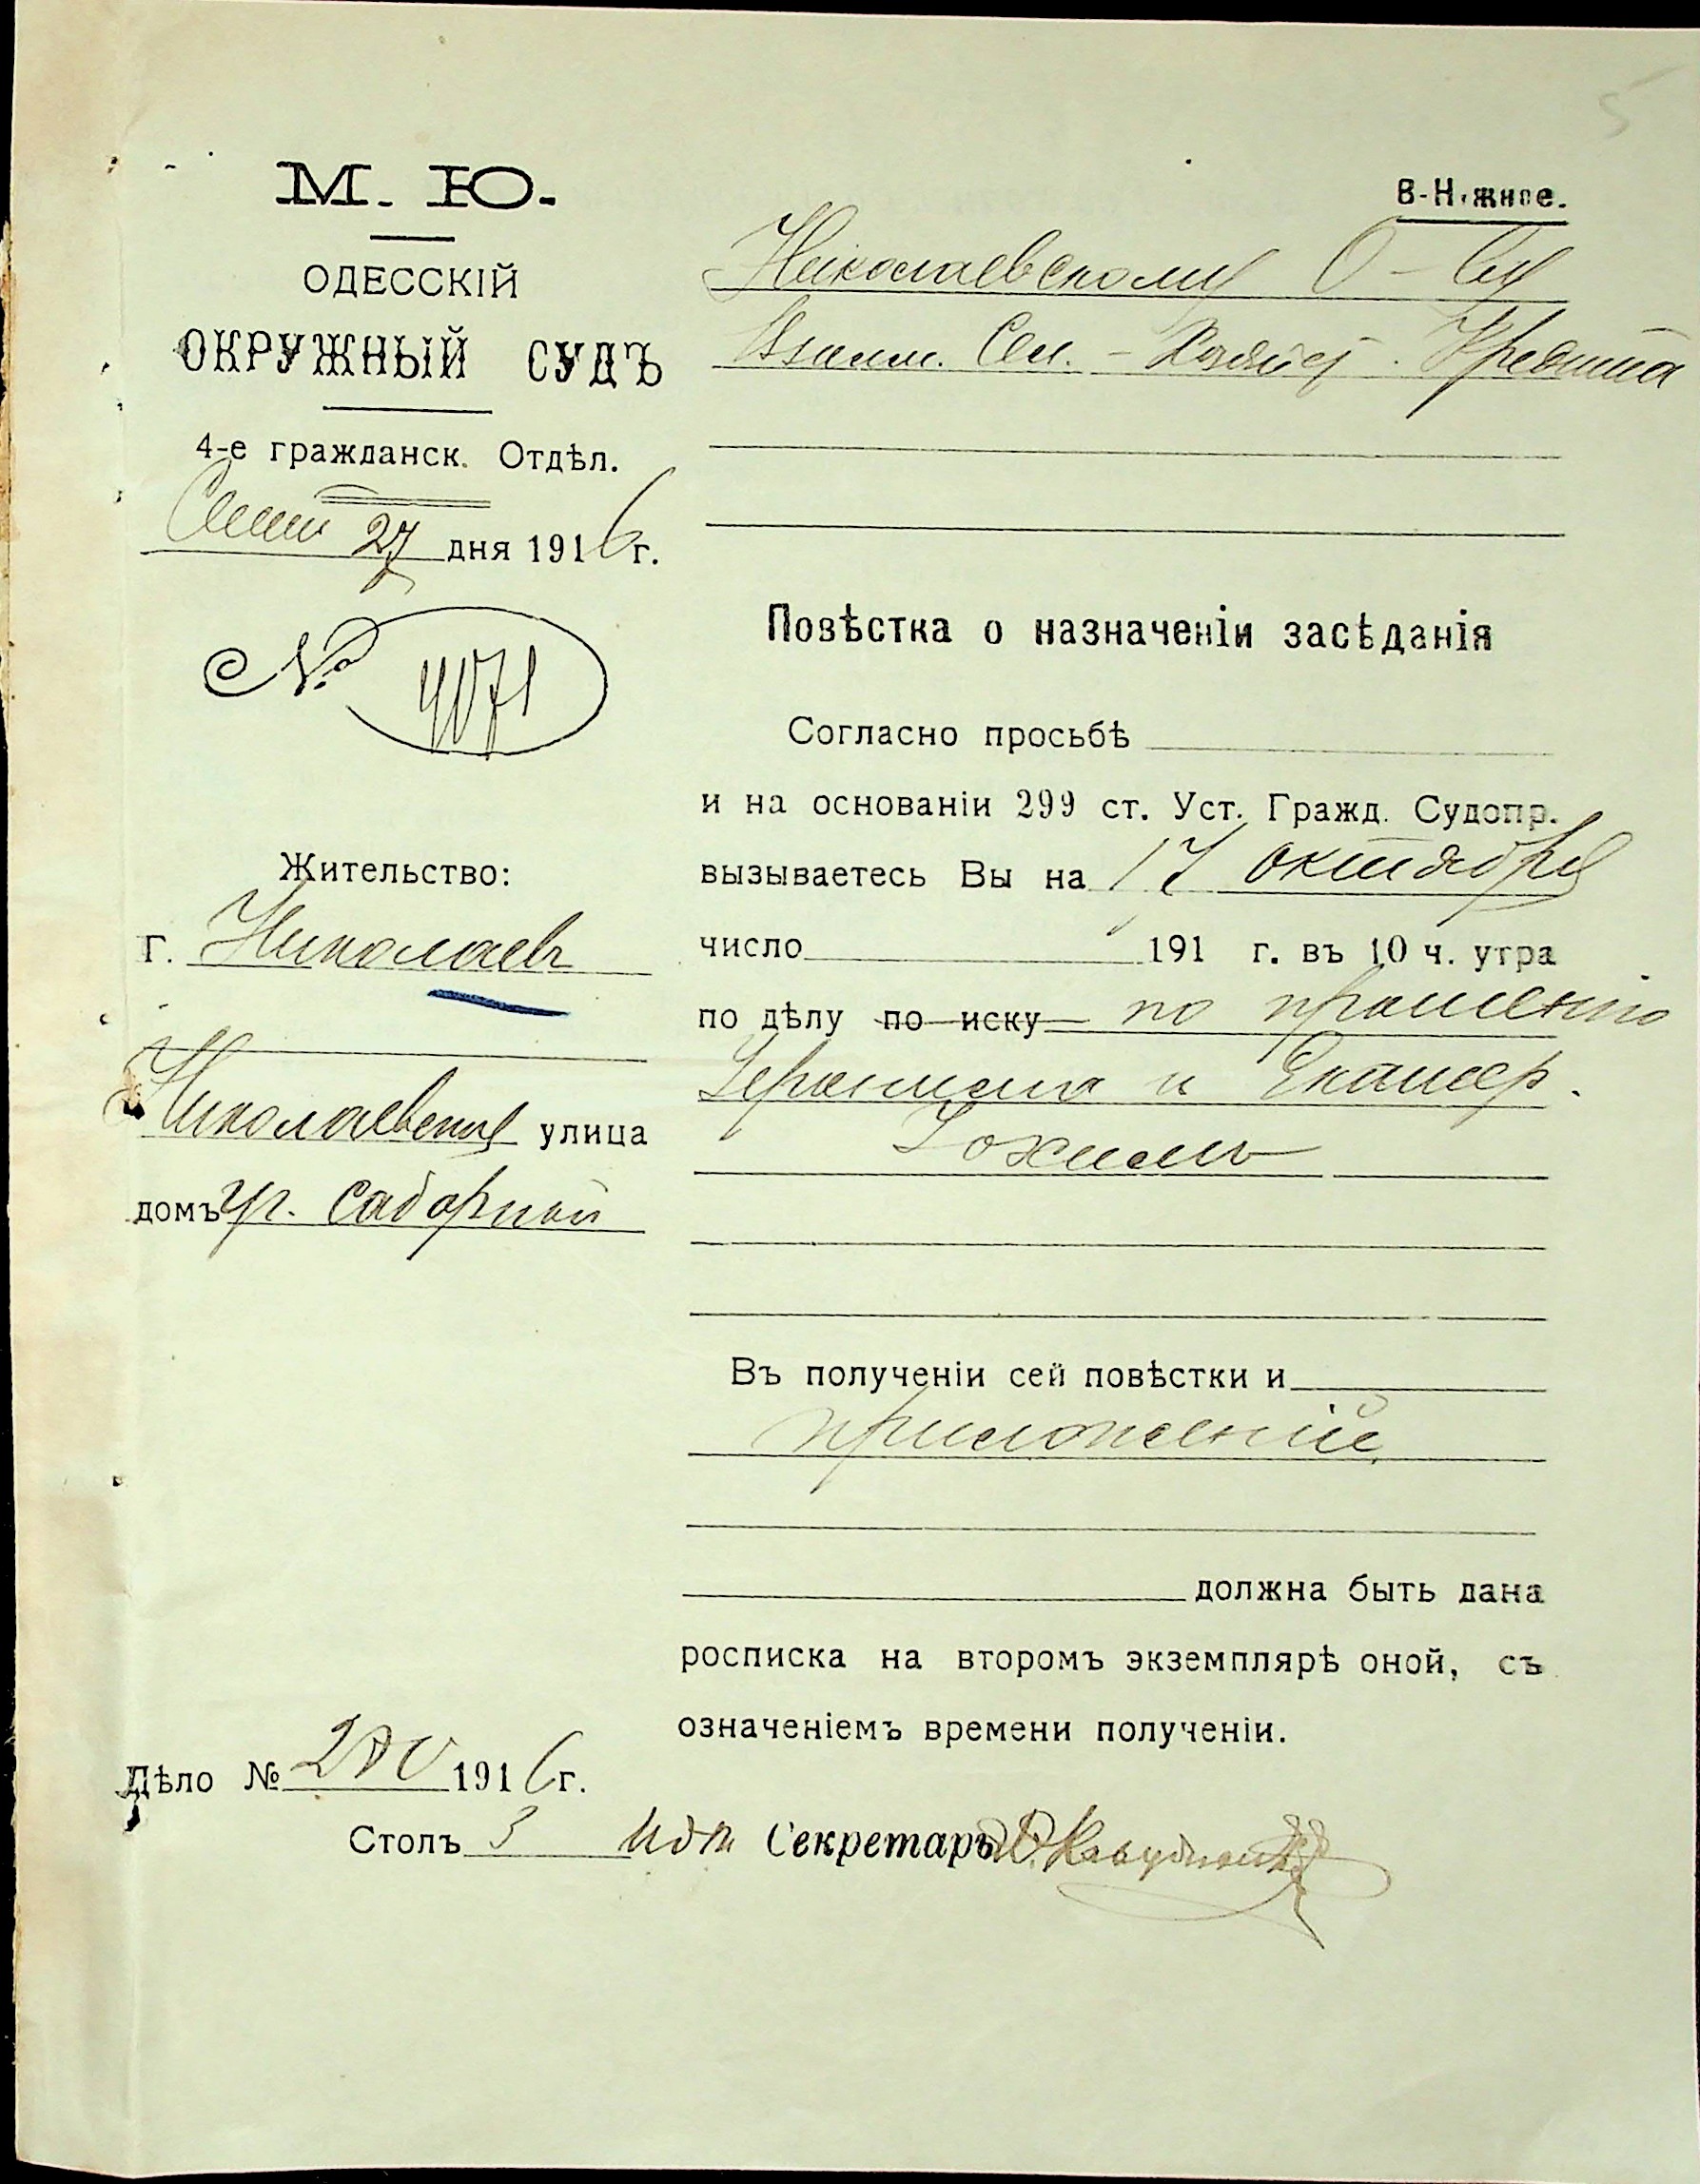 5
М. Ю.
ОДЕССКІЙ
ОКРУЖНЫЙ СУДЪ
4-е гражданск. Отдѣл.
Сент 27 дня 1916 г.
№ 4071
Жительство:
г. Николаевъ
Николаевская улица
домъ уг. Соборной
Дѣло № 1916 г.
Столъ 3
В-Нѣжное.
Николаевскому О-ву
Взаим. Сел.-Хозяйст. Кредита
Повѣстка о назначеніи засѣданія
Согласно просьбѣ
и на основаніи 299 ст. Уст. Гражд. Судопр.
вызываетесь Вы на 17 октября
число 191 г. въ 10 ч. утра
по дѣлу по иску по прошенію
и Екатер.
Въ полученіи сей повѣстки и
приложеній
должна быть дана
росписка на второмъ экземплярѣ оной, съ
означеніемъ времени полученіи.
Секретарь